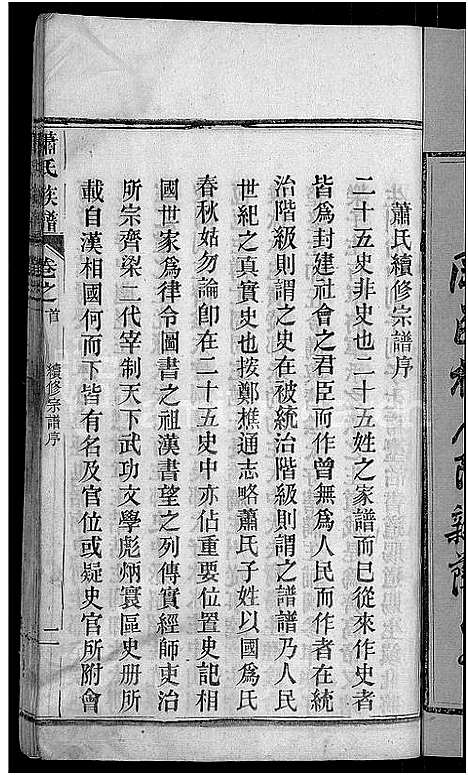 蕭氏續修宗譜序
二十五史非史也二十五姓之家譜而已從來作史者
皆爲封建社會之君臣而作曾無爲人民而作者在統
治階級則謂之史在被統治階級則謂之譜譜乃人民
世紀之真實史也按鄭樵通志略蕭氏子姓以國爲氏
春秋姑勿論卽在二十五史中亦佔重要位置史記相
國世家爲律令圖書之祖漢書望之列傳實經師吏治
所宗齊梁二代宰制天下武功文學彪炳寰區史册所
載自漢相國何而下皆有名及官位或疑史官所附會
蕭氏族譜
卷之首
續修宗譜序
二